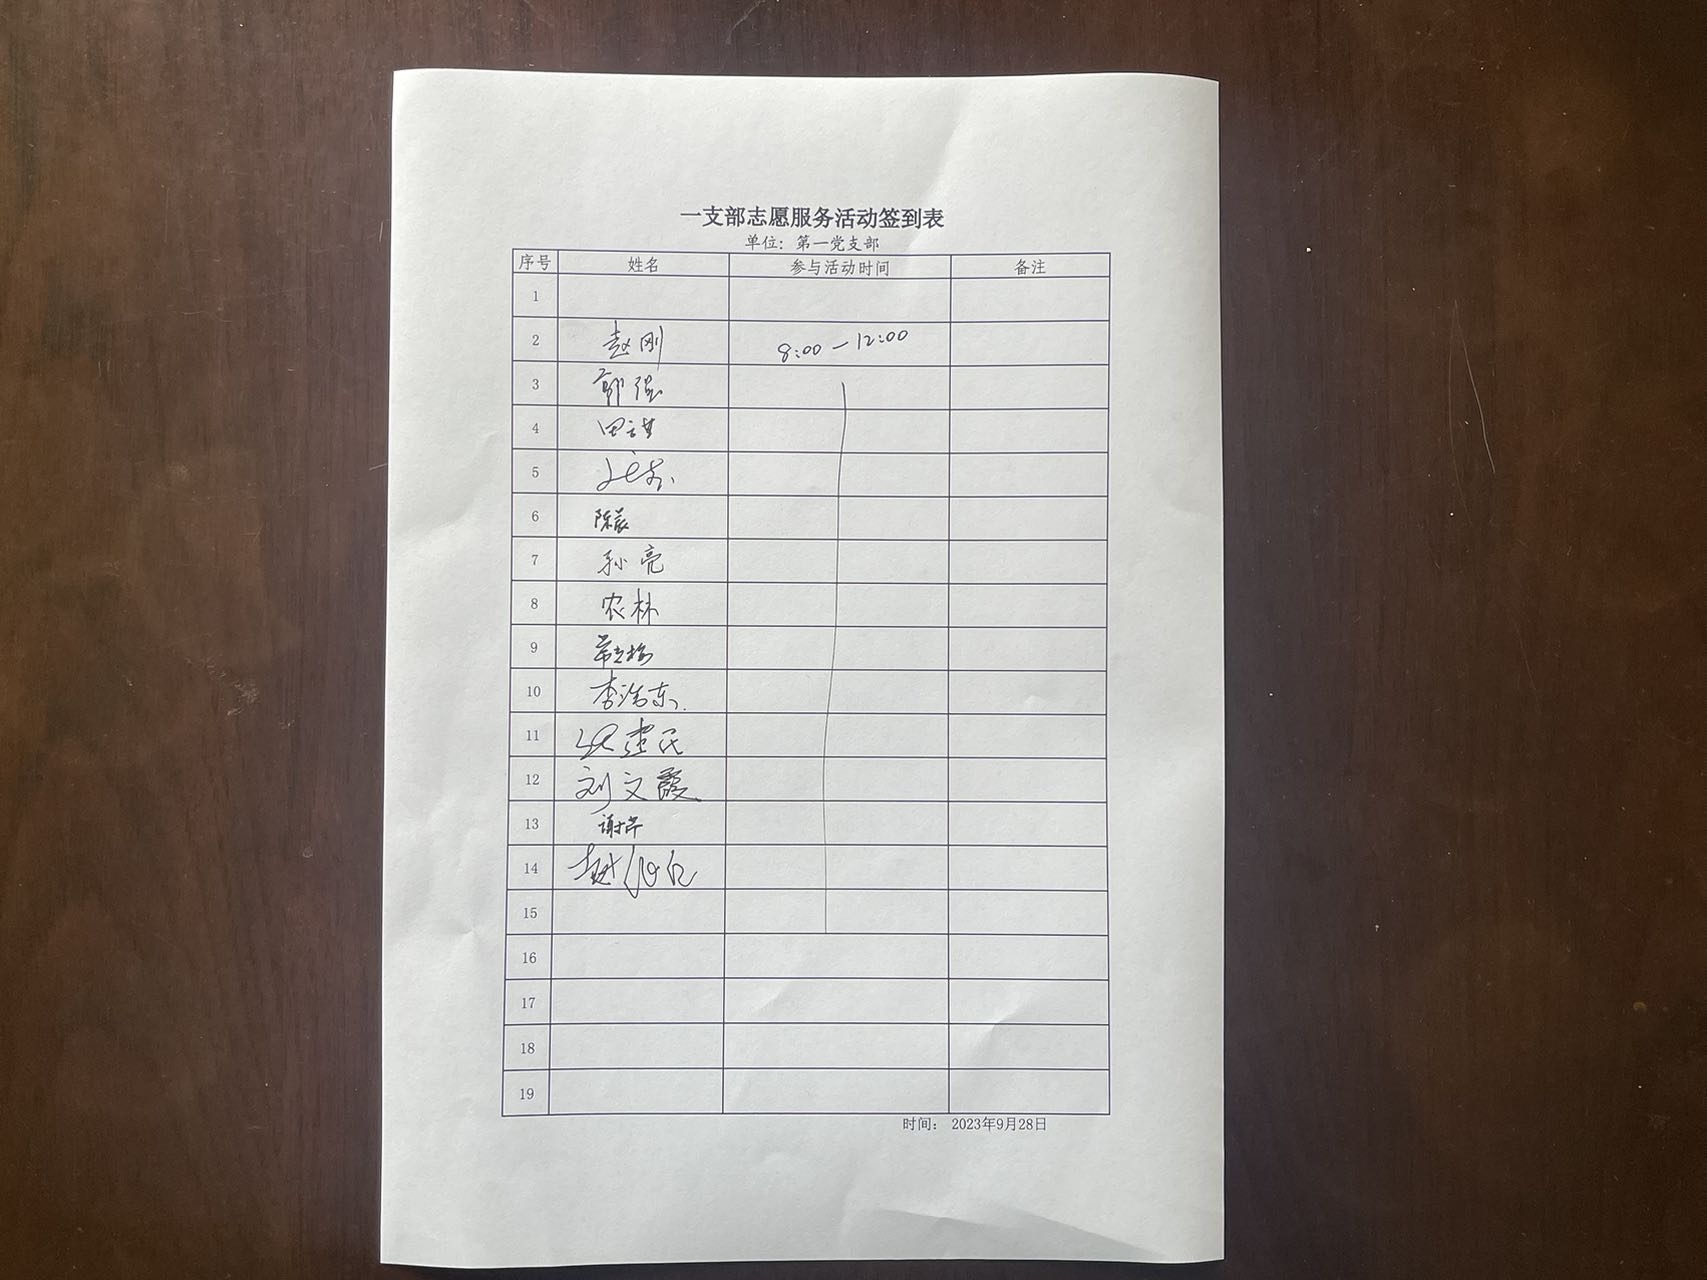 一支部志愿服务活动签到表
单位：第一党支部
序号 姓名 参与活动时间 备注
1
2 赵刚 8:00—12:00
3 郭强
4
5
6 陈晨
7 孙亮
8 农林
9
10 李浩东
11 建民
12 刘文霞
13 谢芹
14
15
16
17
18
19
时间： 2023年9月28日